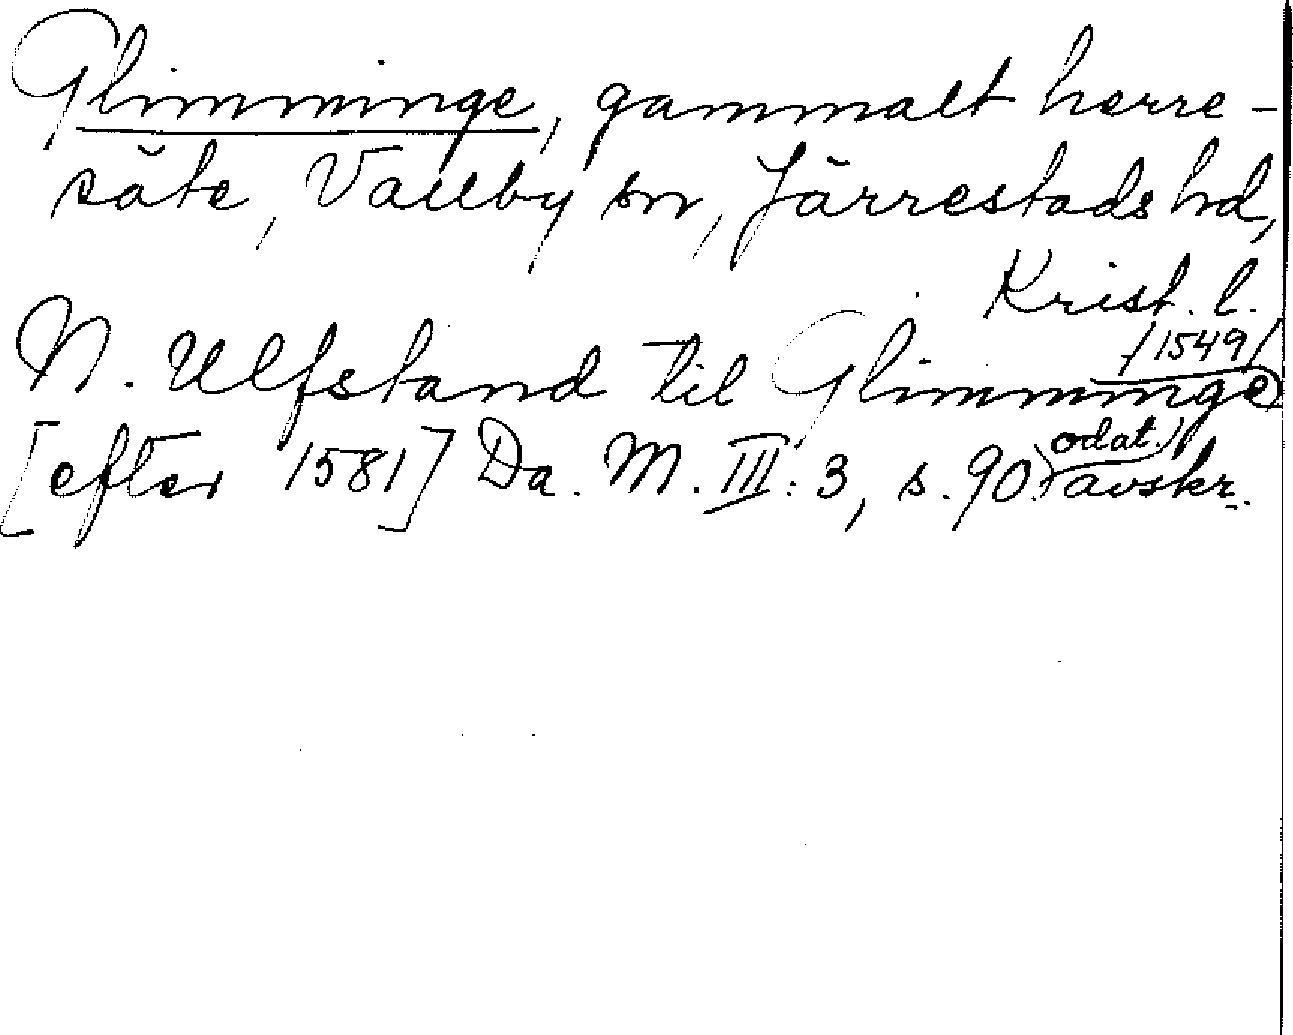 Glimminge, gammalt herre-
säte, Vallby sn, Järrestads hd,
Krist. l.
/1549/
N. Ulfstand til Glimminge
[efter 1581] Da. M. III: 3, s. 90. odat. avskr.